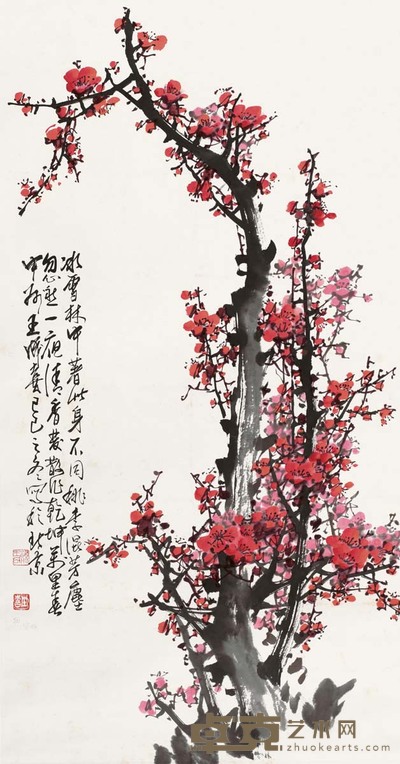 冰雪林中著此身不同桃李混芳塵
忽然一夜清香發散作乾坤萬里春
中州王成喜己巳之冬寫於北京
卓克艺术网
zhuokearts.com